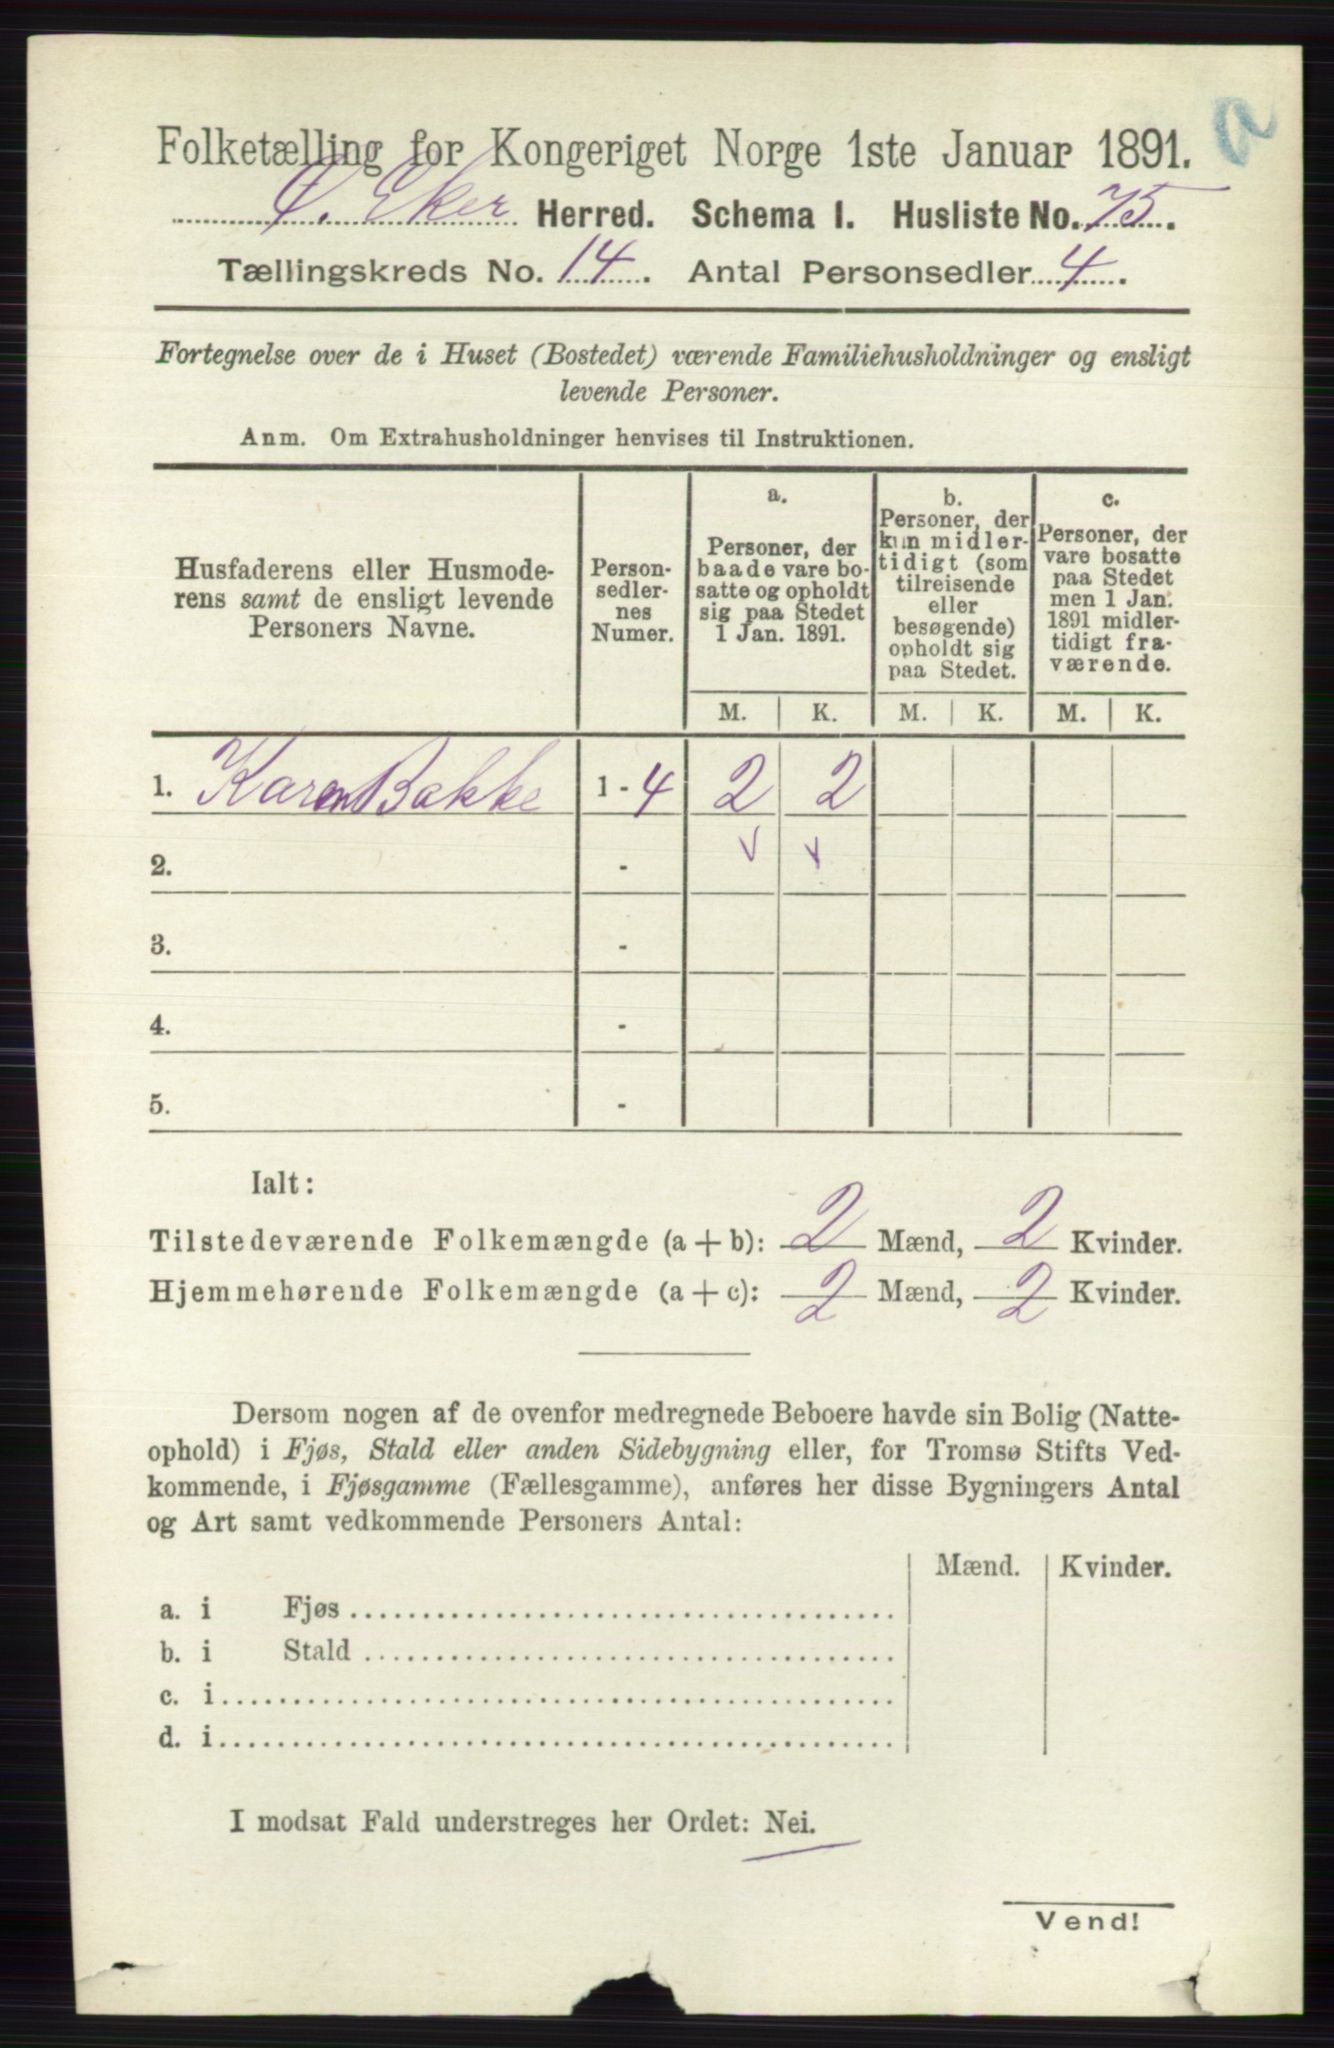 a
Folketælling for Kongeriget Norge 1ste Januar 1891.
Ø. Eker Herred. Schema I. Husliste No. 75.
Tællingskreds No. 14. Antal Personsedler 4.
Fortegnelse over de i Huset (Bostedet) værende Familiehusholdninger og ensligt
levende Personer.
Anm. Om Extrahusholdninger henvises til Instruktionen.
Husfaderens eller Husmode-
rens samt de ensligt levende
Personers Navne.
Person-
sedler-
nes
Numer.
a.
Personer, der
baade vare bo-
satte og opholdt
sig paa Stedet
1 Jan. 1891.
b.
Personer, der
kun midler-
tidigt (som
tilreisende
eller
besøgende)
opholdt sig
paa Stedet.
c.
Personer, der
vare bosatte
paa Stedet
men 1 Jan.
1891 midler-
tidigt fra-
værende.
M. K. M. K. M. K.
1. Karen Bakke 1 - 4 2 2
2. -
3. -
4. -
5. -
Ialt:
Tilstedeværende Folkemængde (a + b): 2 Mænd, 2 Kvinder.
Hjemmehørende Folkemængde (a + c): 2 Mænd, 2 Kvinder.
Dersom nogen af de ovenfor medregnede Beboere havde sin Bolig (Natte-
ophold) i Fjøs, Stald eller anden Sidebygning eller, for Tromsø Stifts Ved-
kommende, i Fjøsgamme (Fællesgamme), anføres her disse Bygningers Antal
og Art samt vedkommende Personers Antal:
Mænd. Kvinder.
a. i Fjøs
b. i Stald
c. i
d. i
I modsat Fald understreges her Ordet: Nei.
Vend!